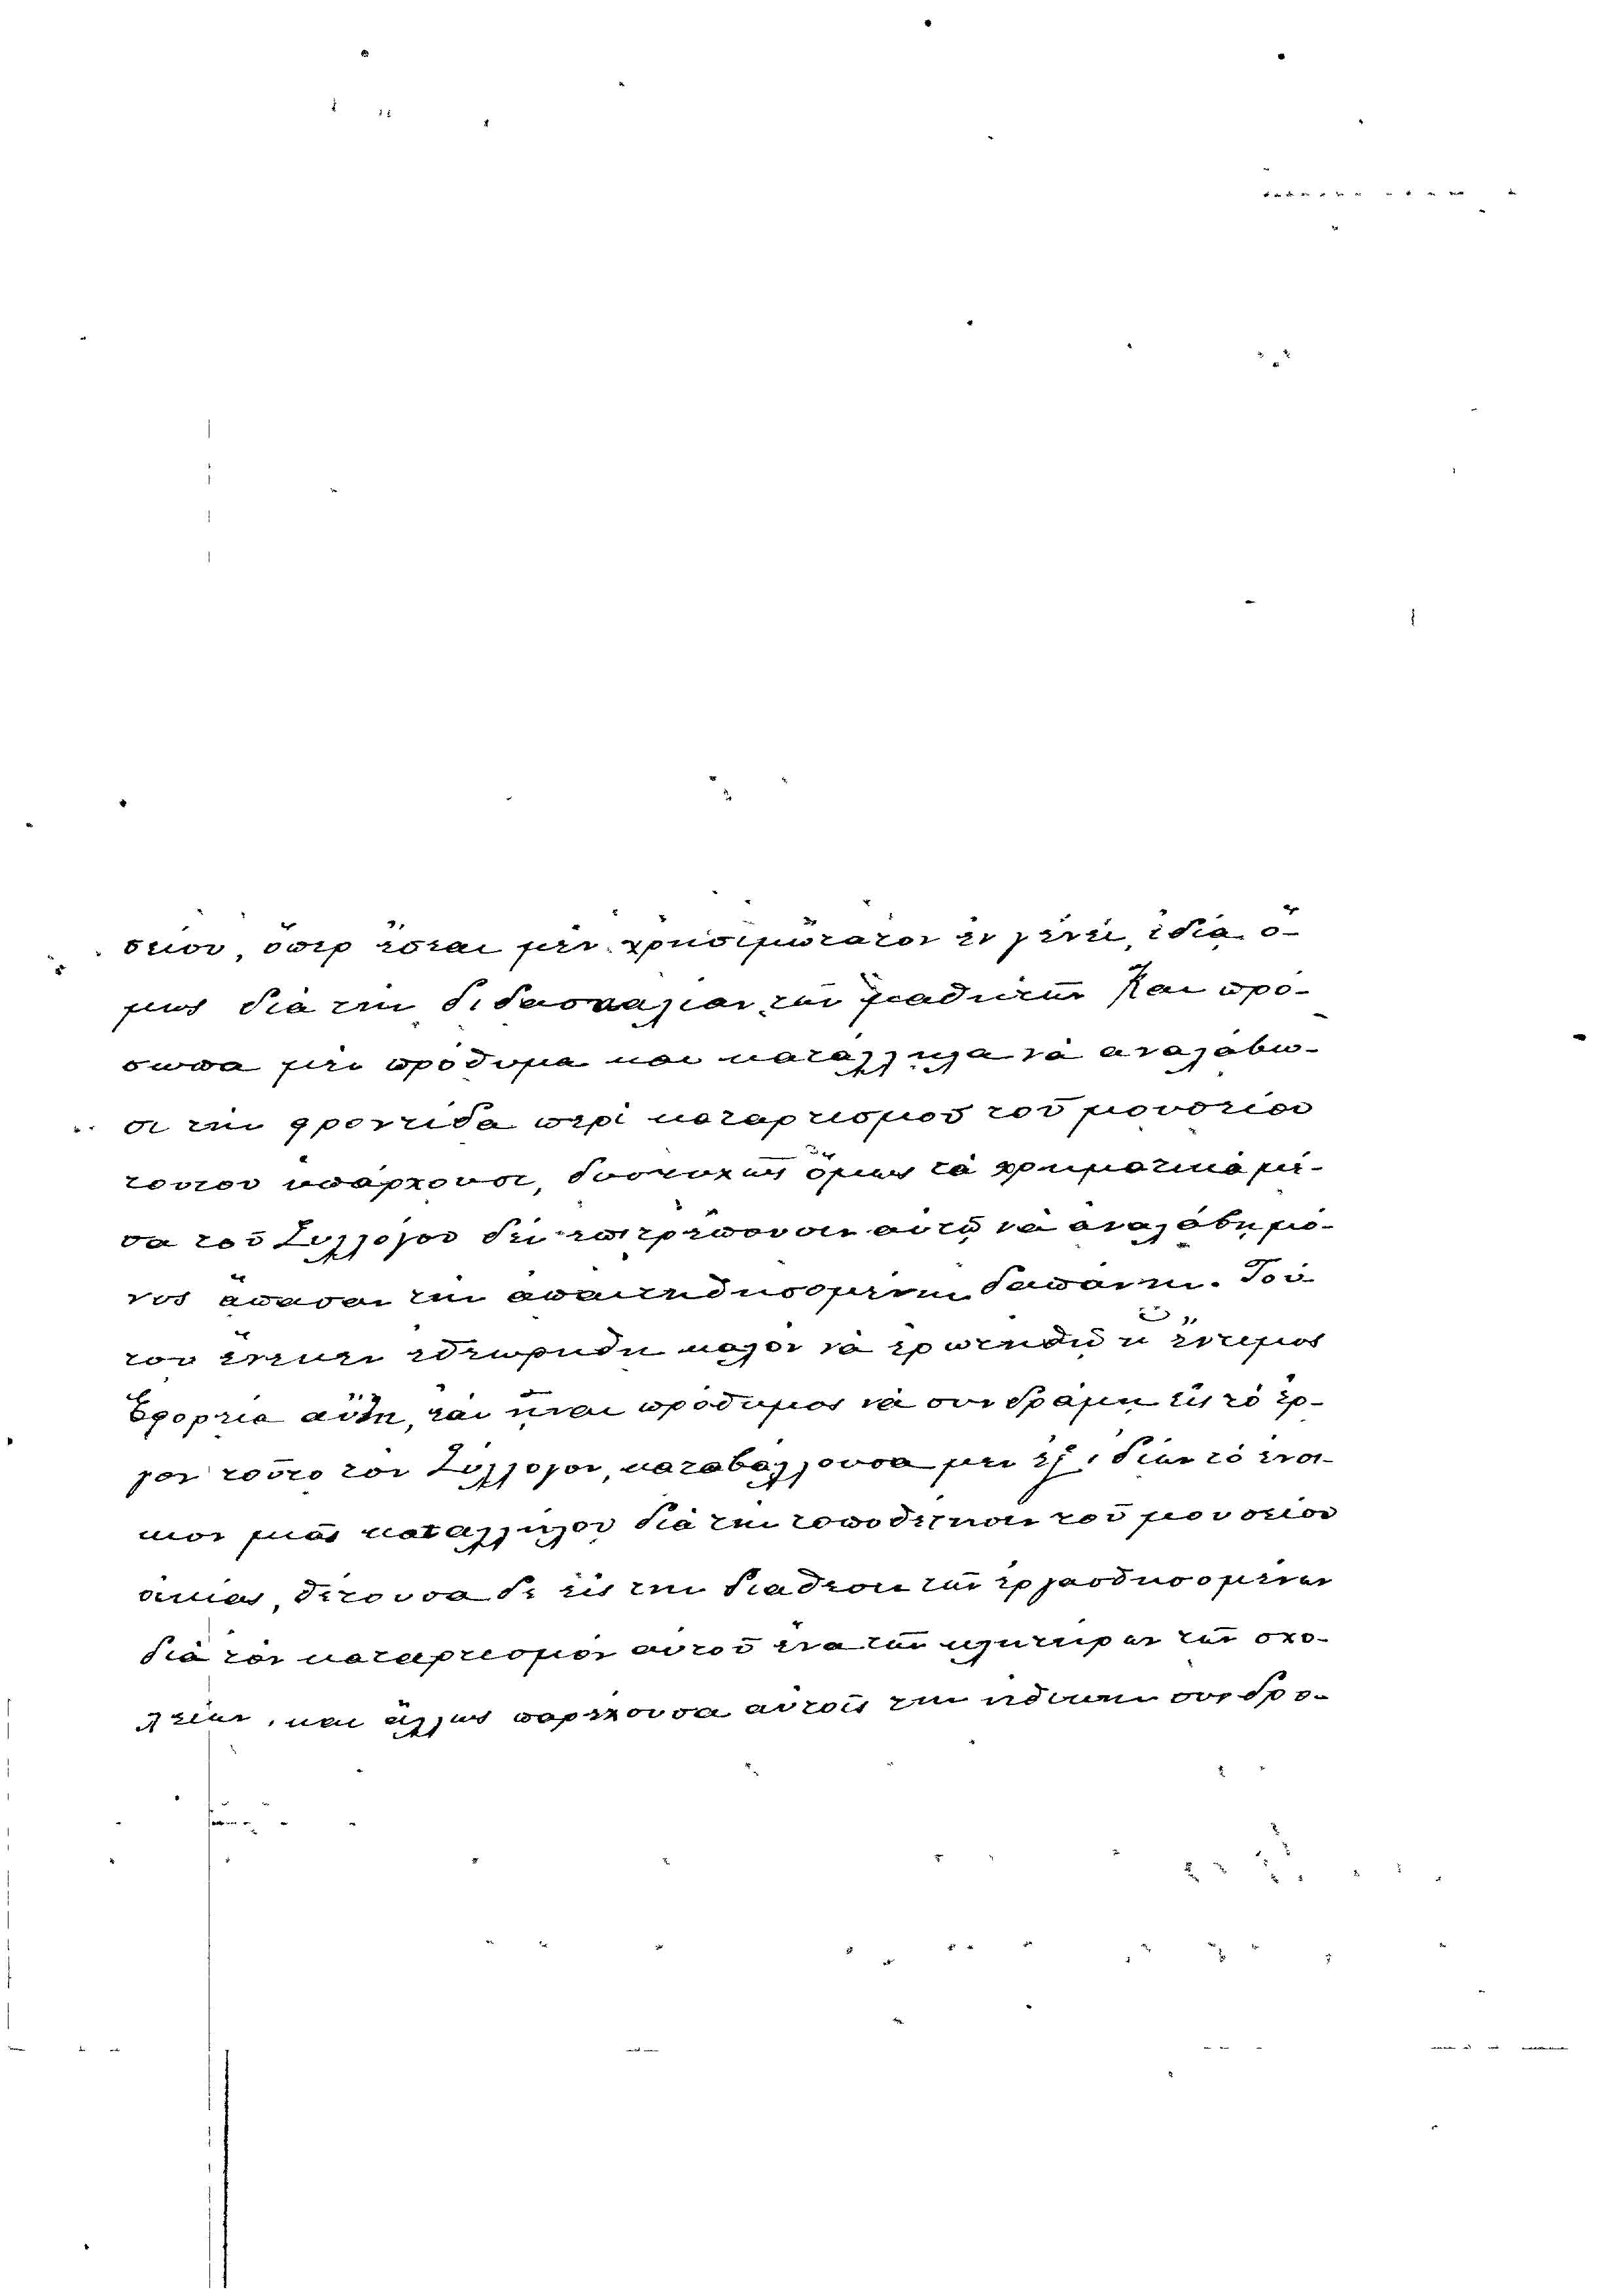 σείον, ὅπερ ἔσται μὲν χρησιμώτατον ἐν γένει, ἰδίᾳ ὅ-
μως διὰ τὴν διδασκαλίαν τῶν μαθητῶν. Καὶ πρό-
σωπα μὲν πρόθυμα καὶ κατάλληλα νὰ ἀναλάβω-
σι τὴν φροντίδα περὶ καταρτισμοῦ τοῦ μουσείου
τούτου ὑπάρχουσι, δυστυχῶς ὅμως τὰ χρηματικὰ μέ-
σα τοῦ Συλλόγου δὲν ἐπιτρέπουσιν αὐτῷ νὰ ἀναλάβῃ μό-
νος ἅπασαν τὴν ἀπαιτηθησομένην δαπάνην. Τού-
του ἕνεκεν ἐθεωρήθη καλὸν νὰ ἐρωτηθῇ ἡ ἔντιμος
Ἐφορεία αὕτη, ἐὰν ᾖναι πρόθυμος νὰ συνδράμῃ εἰς τὸ ἔρ-
γον τοῦτο τὸν Σύλλογον, καταβάλλουσα μὲν ἐξ ἰδίων τὸ ἐνοί-
κιον μιᾶς καταλλήλου διὰ τὴν τοποθέτησιν τοῦ μουσείου
οἰκίας, θέτουσα δὲ εἰς τὴν διάθεσιν τῶν ἐργασθησομένων
διὰ τὸν καταρτισμὸν αὐτοῦ ἕνα τῶν κλητήρων τῶν σχο-
λείων, καὶ ἄλλως παρέχουσα αὐτοῖς τὴν ἠθικὴν συνδρο-